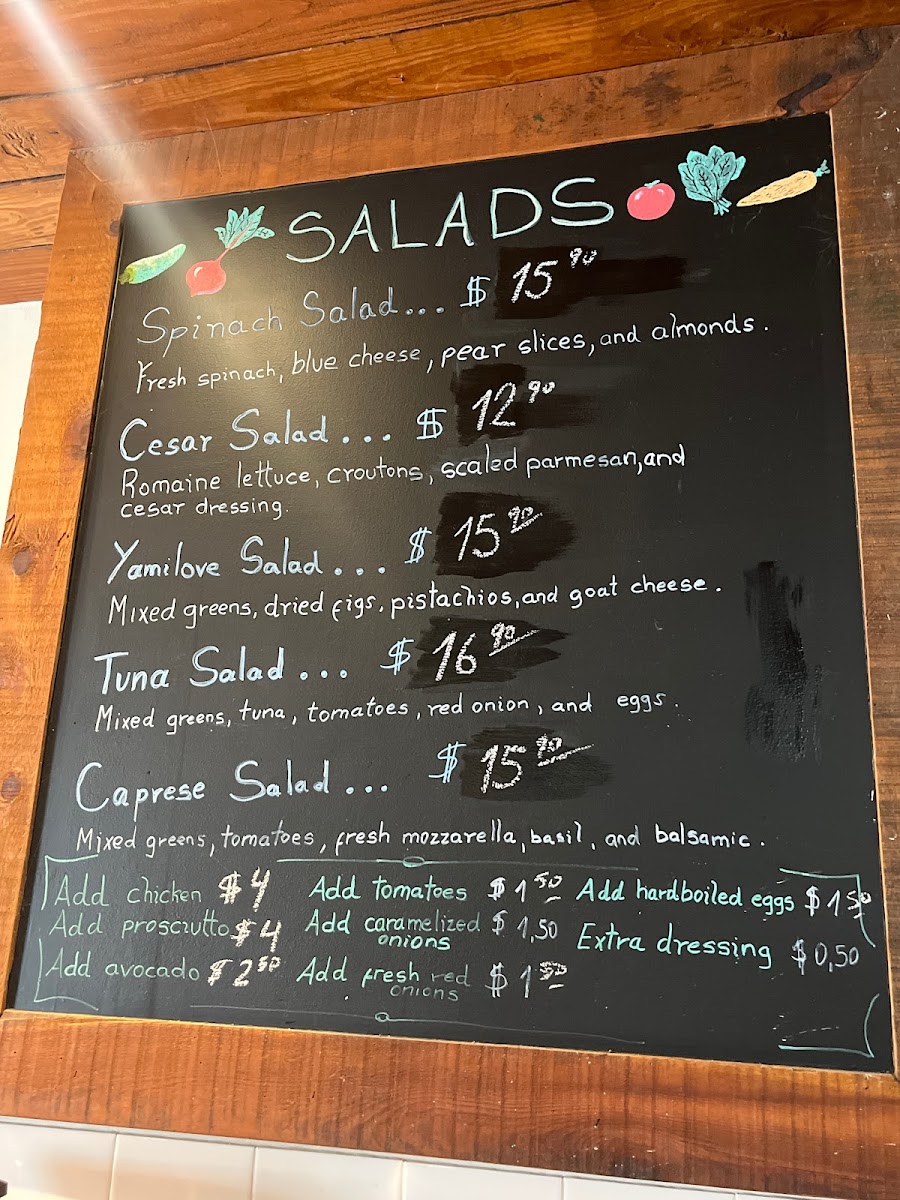 SALADS
Spinach Salad... $ 15 90
Fresh spinach, blue cheese, pear slices, and almonds.
Cesar Salad... $ 12 90
Romaine lettuce, croutons, scaled parmesan, and
cesar dressing.
Yamilove Salad... $ 15 90
Mixed greens, dried figs, pistachios, and goat cheese.
Tuna Salad... $ 16 90
Mixed greens, tuna, tomatoes, red onion, and eggs.
Caprese Salad... $ 15 90
Mixed greens, tomatoes, fresh mozzarella, basil, and balsamic.
Add chicken $4
Add prosciutto $4
Add avocado $2 50
Add tomatoes $1 50
Add caramelized $1,50
onions
Add fresh red $1 50
onions
Add hardboiled eggs $1 50
Extra dressing $0,50